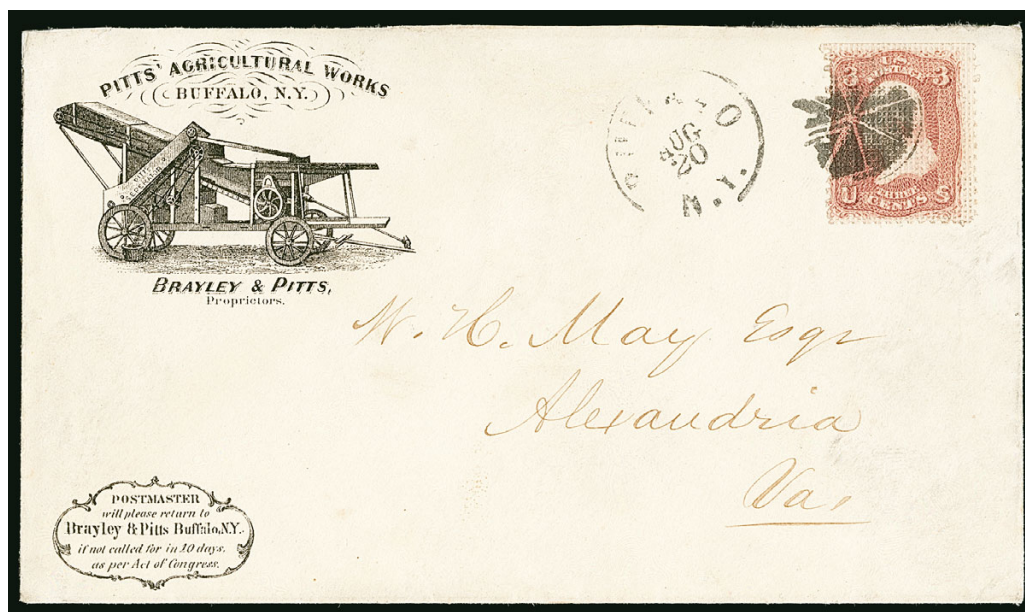 PITTS' AGRICULTURAL WORKS
BUFFALO, N.Y.
BRAYLEY & PITTS,
Proprietors.
BUFFALO
AUG
20
N.Y.
3 U.S. 3
POSTAGE
U THREE S
CENTS
W. H. May Esqr
Alexandria
Va.
POSTMASTER
will please return to
Brayley & Pitts Buffalo, N.Y.
if not called for in 10 days.
as per Act of Congress.